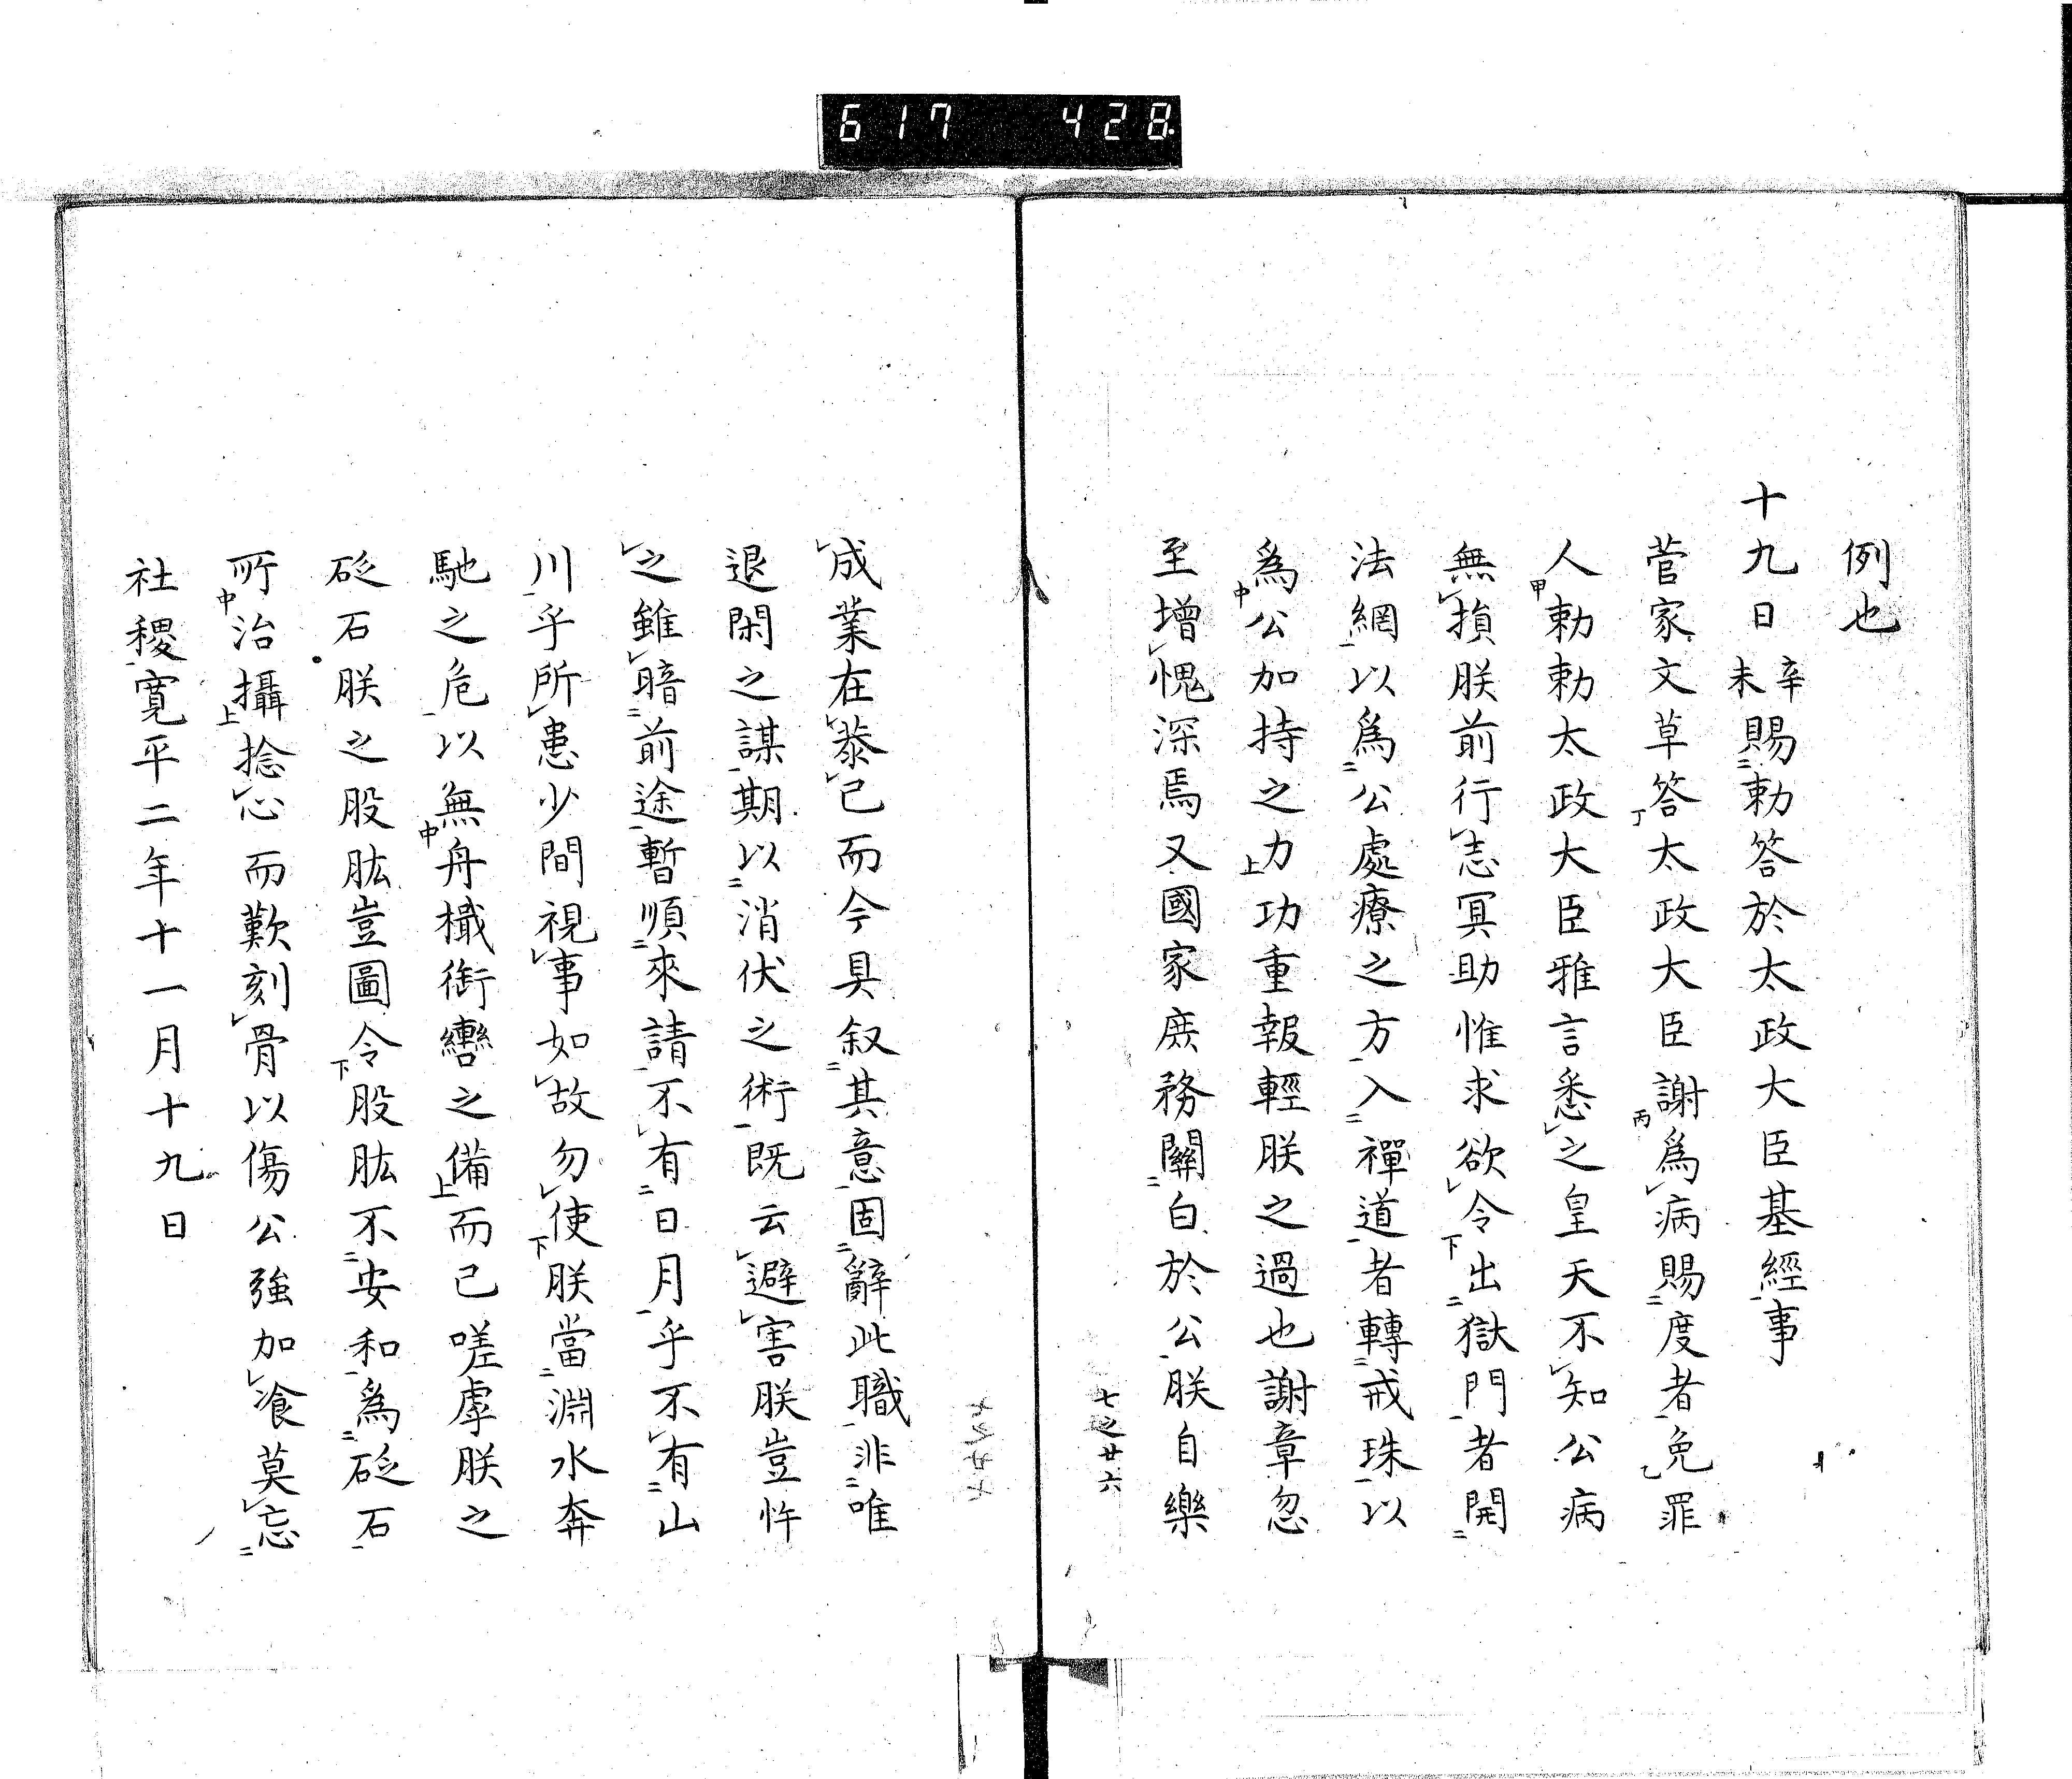 617 428
例也
十九日辛未賜勅答於太政大臣基經事
菅家文草答太政大臣謝爲病賜度者免罪
人勅勅太政大臣雅言悉之皇天不知公病
無損朕前行志冥助惟求欲令出獄門者開
法網以爲公處療之方入禪道者轉戒珠以
爲公加持之力功重報輕朕之過也謝章忽
至增愧深焉又國家庶務關白於公朕自樂
七之廿六
成業在恭已而今具叙其意固辭此職非唯
退閑之謀期以消伏之術既云避害朕豈忤
之雖暗前途暫順來請不有日月乎不有山
川乎所患少間視事如故勿使朕當淵水奔
馳之危以無舟檝銜轡之備而已嗟虖朕之
砭石朕之股肱豈圖令股肱不安和爲砭石
所治攝捻心而歎刻骨以傷公強加飡莫忘
社稷寛平二年十一月十九日